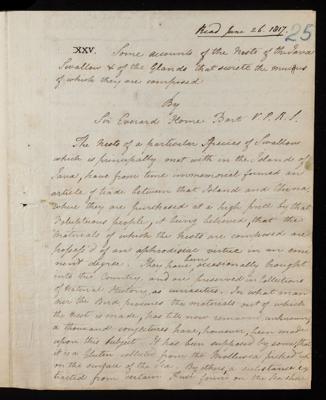 Read June 26. 1817.
25
XXV. Some accounts of the Nests of the Java
Swallow & of the Glands that secrete the mucus
of which they are composed
By
Sir Everard Home Bart V.P.R.S.
The Nests of a particular Species of Swallow
which is principally met with in the Island of
Java, have from time immemorial formed an
article of trade between that Island and China
where they are purchased at a high price by that
people, it being believed, that the
Materials of which the Nests are composed are
possess'd of an aphrodisiac virtue in an emi
nent degree. They have been occasionally brought
into this Country, and are preserved in Collections
of Natural History, as curiosities. In what man
ner the Bird procures the materials out of which
the Nest is made, has till now remained unknown,
a thousand conjectures have, however, been made
upon this subject. It has been supposed by some, that
it is a Gluten collected from the Mollusca, picked up
on the surface of the Sea. By others, a substance ex
tracted from certain found on the Sea shore